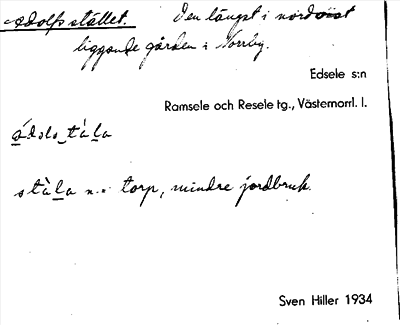 Adolfsstället. Den längst i nordväst
liggande gården i Norrby.
Edsele s:n
Ramsele och Resele tg., Västernorrl. l.
stà̲la n.: torp, mindre jordbruk.
Sven Hiller 1934